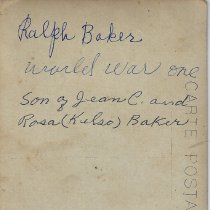 Ralph Baker
world war one
Son of Jean C. and
Rosa (Kelso) Baker
CARTE POSTA